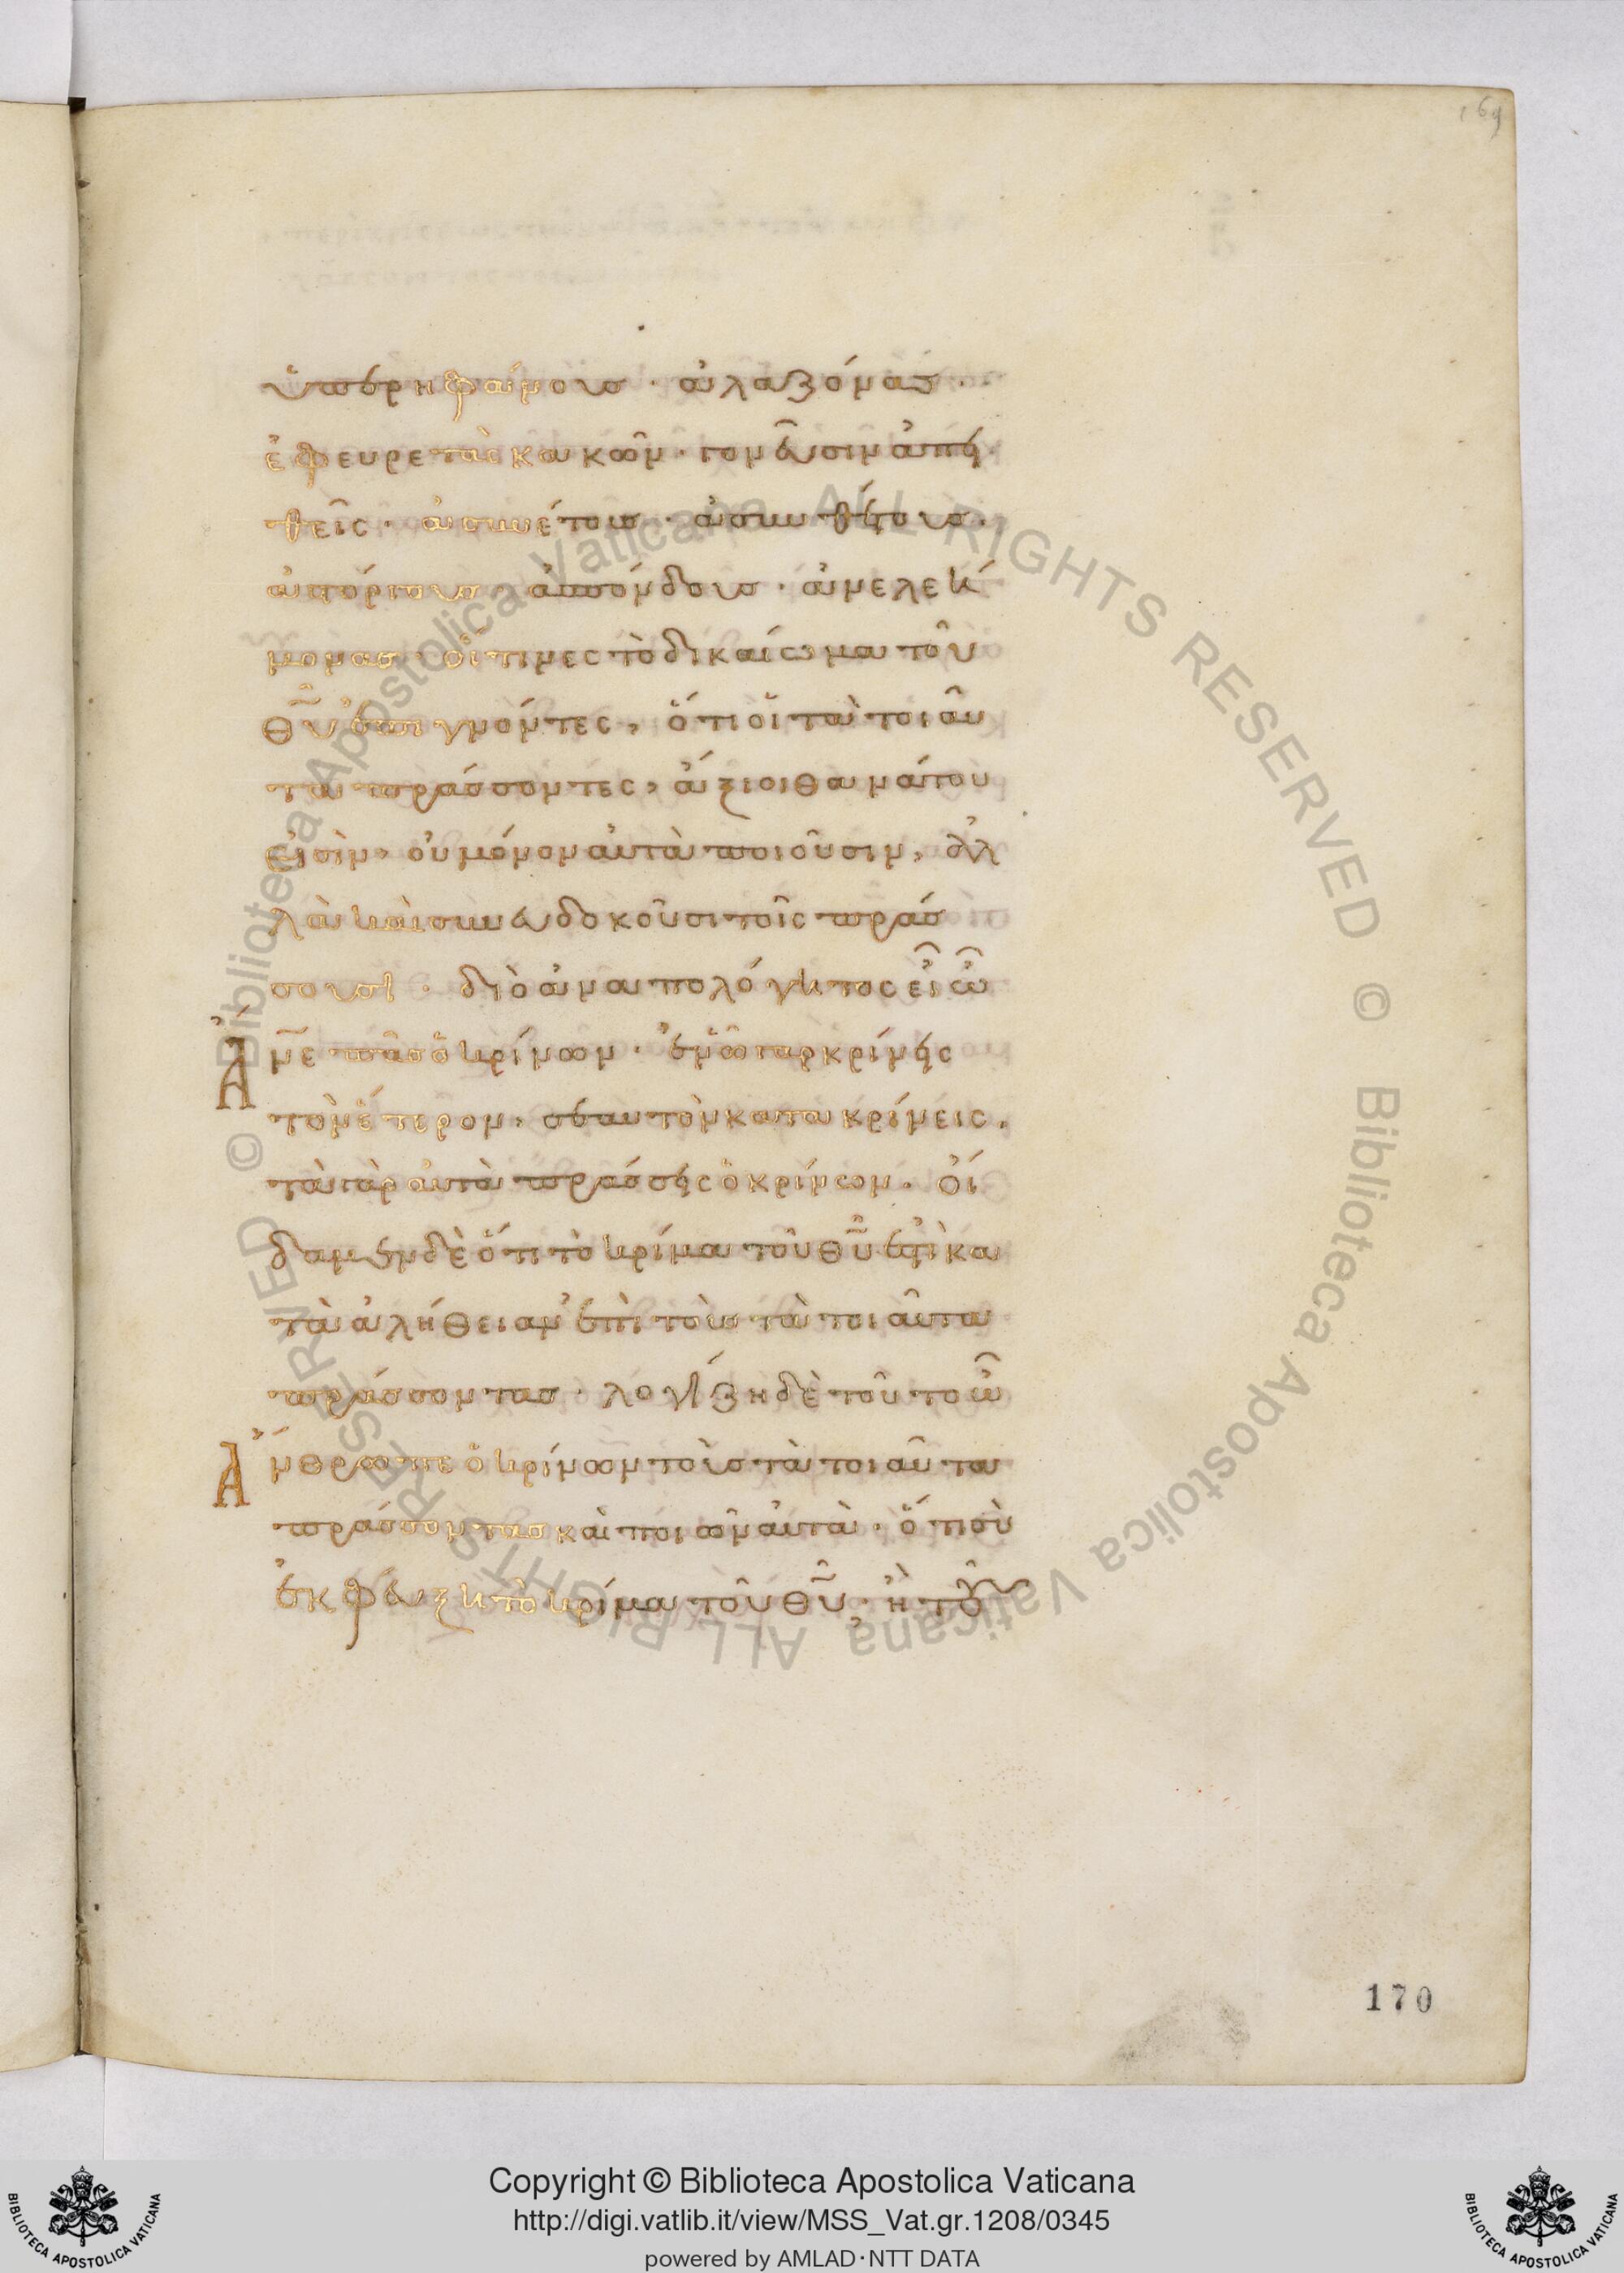 169
ὑπερηφάνους · ἀλαζόνας ·
ἐφευρετὰς κακῶν · γονεῦσιν ἀπει
θεῖς · ἀσυνέτους · ἀσυνθέτους ·
ἀστόργους · ἀσπόνδους · ἀνελεή
μονας · οἵτινες τὸ δικαίωμα τοῦ
θ̅υ̅ ἐπιγνόντες, ὅτι οἱ τὰ τοιαῦ
τα πράσσοντες, ἄξιοι θανάτου
εἰσὶν, οὐ μόνον αὐτὰ ποιοῦσιν, ἀλ
λὰ καὶ συνευδοκοῦσι τοῖς πράσ
σουσι · διὸ ἀναπολόγητος εἶ ὦ
Ἄ
ν̅ε̅ πᾶς ὁ κρίνων · ἐν ᾧ γαρ κρίνεις
τὸν ἕτερον, σεαυτὸν κατακρίνεις,
τὰ γὰρ αὐτὰ πράσσεις ὁ κρίνων · οἴ
δαμεν δὲ ὅτι τὸ κρίμα τοῦ θ̅υ̅ ἐστὶ κα
τὰ ἀλήθειαν ἐπὶ τοὺς τὰ τοιαῦτα
πράσσοντας · λογίζη δὲ τοῦτο ὦ
Ἄ
νθρωπε ὁ κρίνων τοὺς τὰ τοιαῦτα
πράσσοντας καὶ ποιῶν αὐτὰ · ὅτι σὺ
ἐκφεύξη τὸ κρίμα τοῦ θ̅υ̅ · ἢ τοῦ
170
© Biblioteca Apostolica Vaticana ALL RIGHTS RESERVED © Biblioteca Apostolica Vaticana ALL RIGHTS RESERVED
Copyright © Biblioteca Apostolica Vaticana
http://digi.vatlib.it/view/MSS_Vat.gr.1208/0345
powered by AMLAD·NTT DATA
BIBLIOTECA APOSTOLICA VATICANA
BIBLIOTECA APOSTOLICA VATICANA